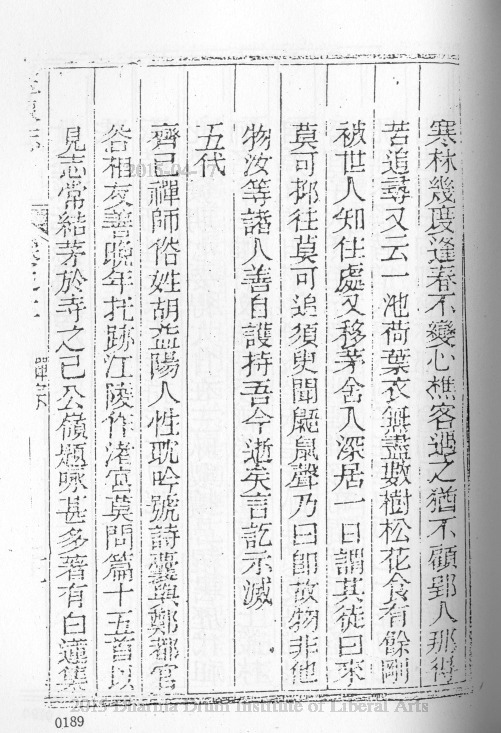 寒林幾度逢春不變心樵客遇之猶不顧郢人那得
苦追尋又云一池荷葉衣無盡數樹松花食有餘剛
被世人知住處又移茅舍入深居一日謂其徒曰來
莫可抑往莫可追須臾聞鼯鼠聲乃曰即故物非他
物汝等諸人善自護持吾今逝矣言訖示滅
五代
齊己禪師俗姓胡益陽人性耽吟號詩囊與鄭都官
谷相友善晚年托跡江陵作渚宮莫問篇十五首以
見志常結茅於寺之己公嶺題咏甚多著有白蓮集
禪宗
2015-04-17
2015 Dharma Drum Institute of Liberal Arts
0189